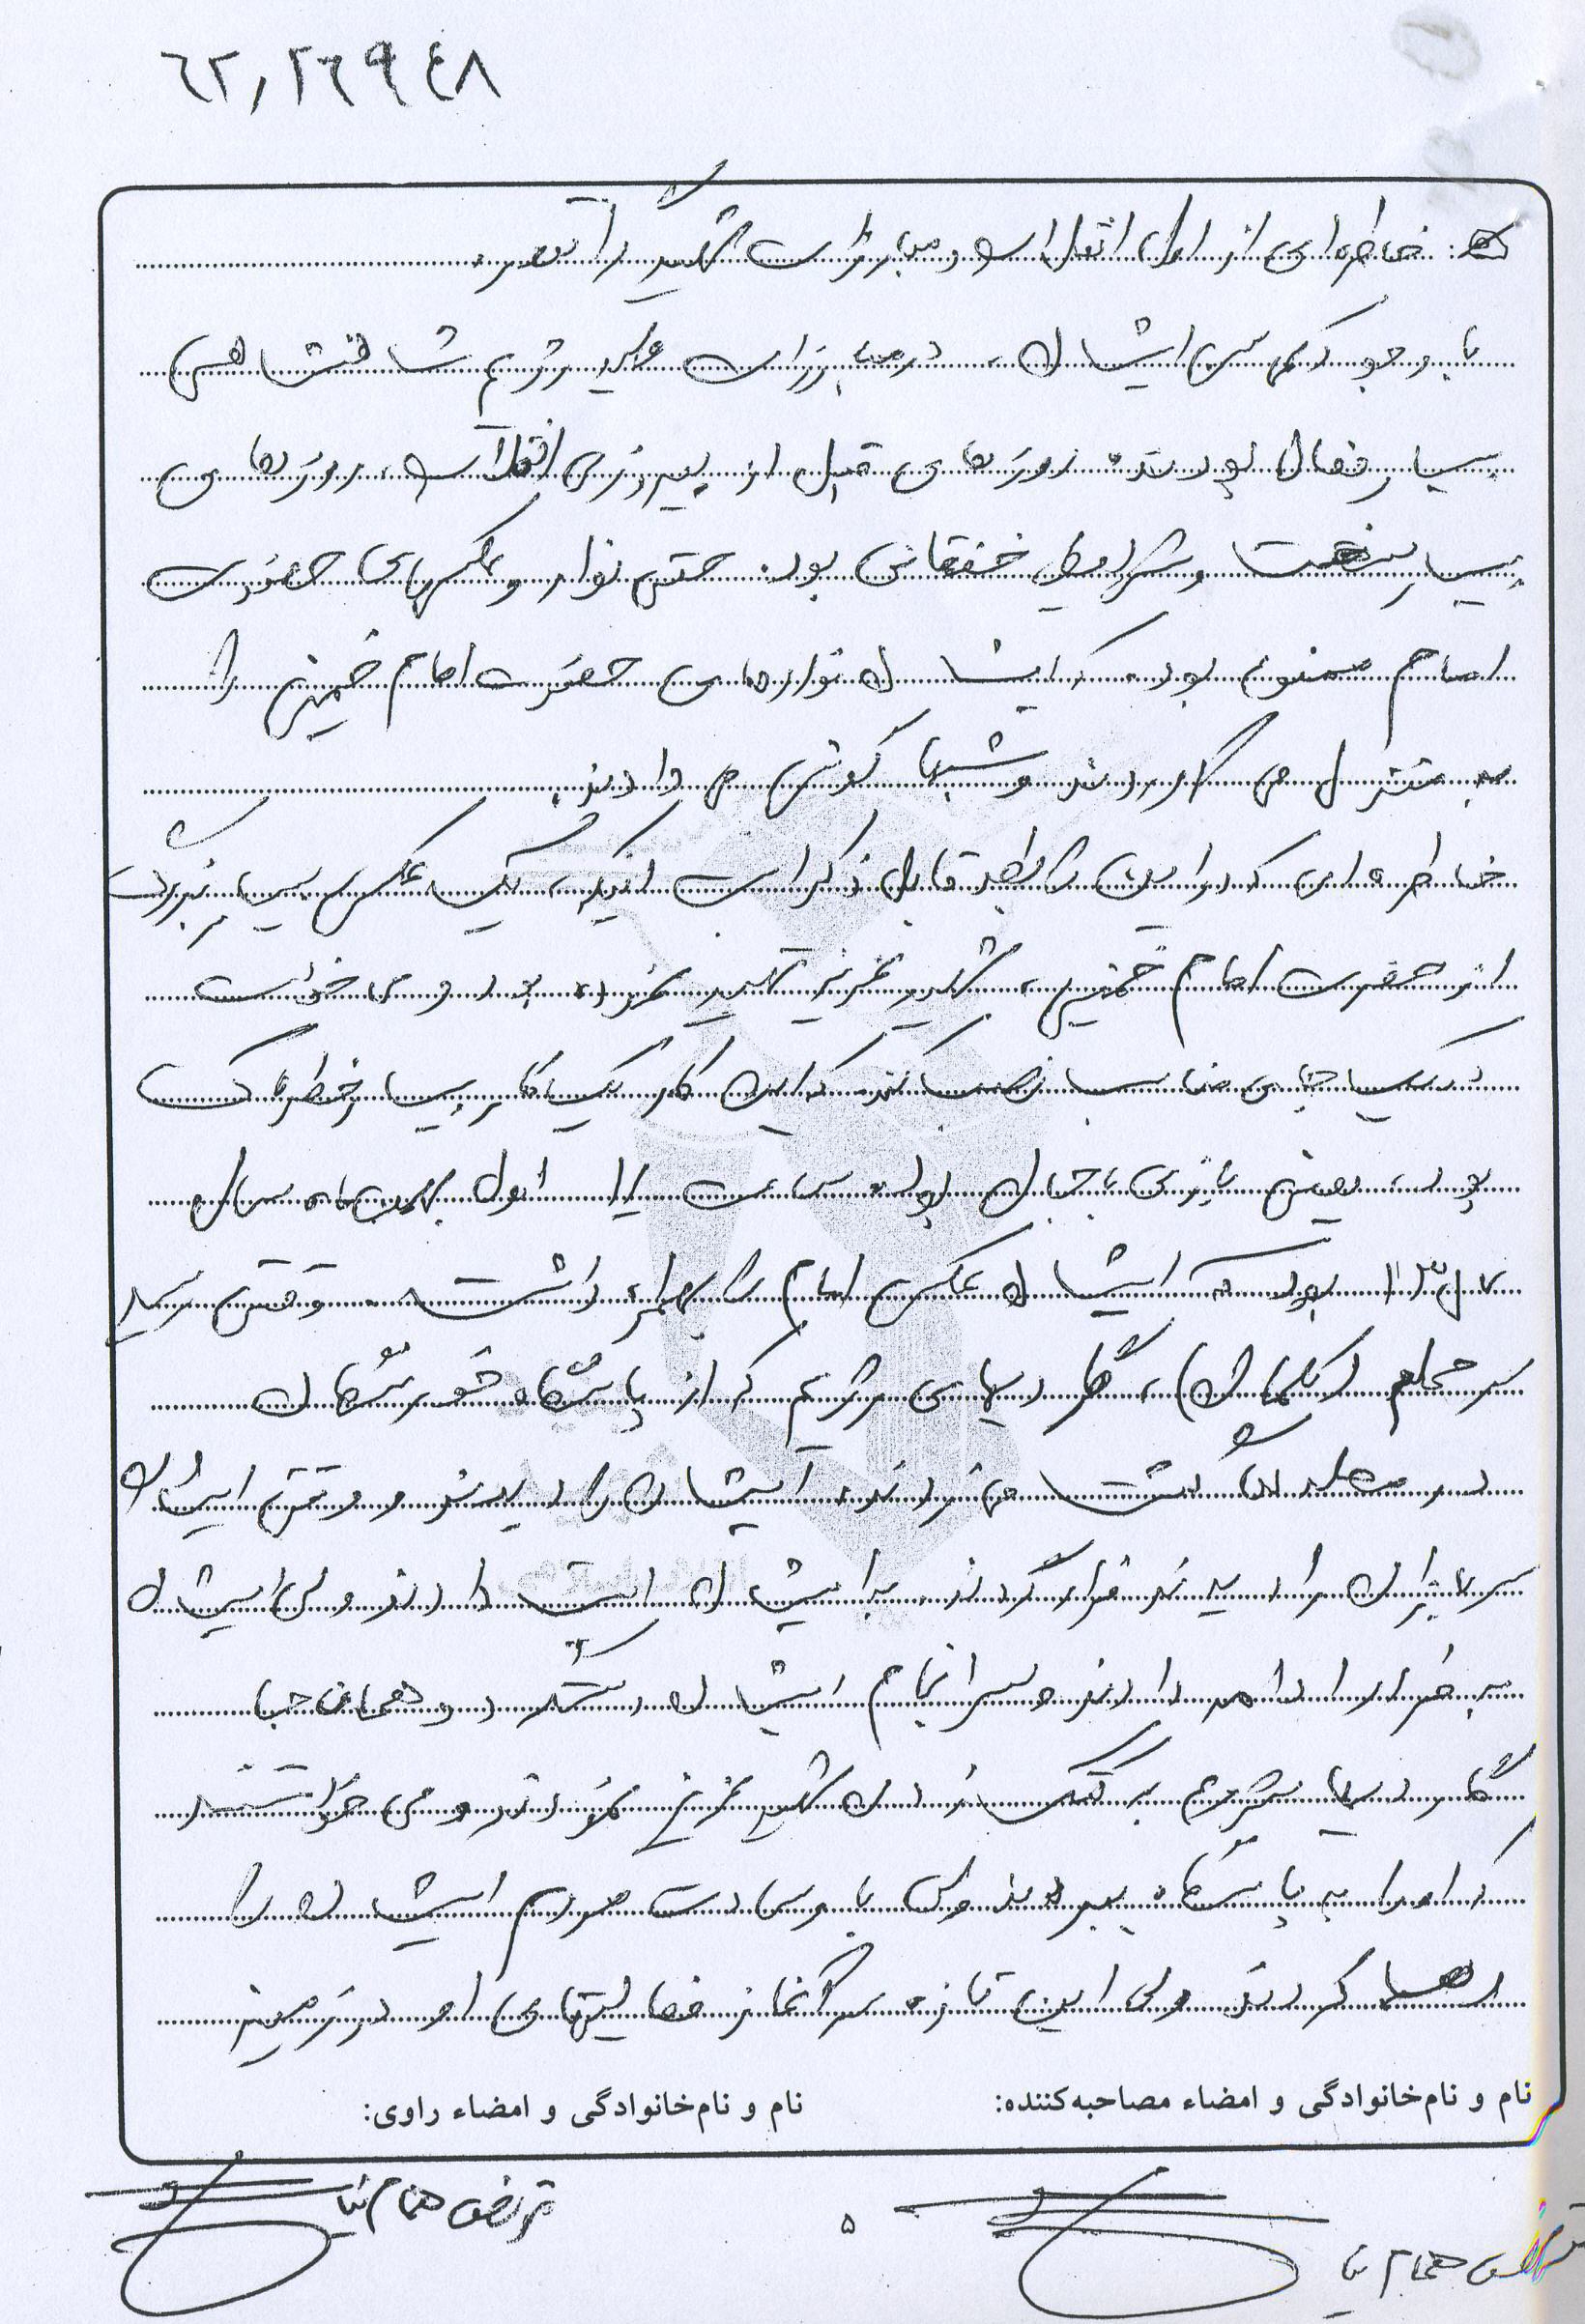 ٦٢,٢٦٩٤٨
: خاطره‌ای از اول انقلاب و مبارزات شهید در آنصر.
با وجود کم سن ایشان، در مبارزات علیه رژیم شاهنشاهی
بسیار فعال بودند. روزهای قبل از پیروزی انقلاب، روزهای
بسیار سخت و شرایط خفقانی بود. حتی نوار و عکسهای حضرت
امام ممنوع بود. که ایشان نوارهای حضرت امام خمینی را
به منزل می آوردند و شبها گوش می دادند.
خاطره ای که در این رابطه قابل ذکر است اینکه، یک عکس بسیار بزرگ
از حضرت امام خمینی، شهید عزیز تهیه نموده بود و می خواست
که یک جای مناسب نصب کند که این کار یک کار بسیار خطرناک
بود، یعنی بازی با جان بود. ساعت اول بهمن ماه سال
۱۳۵۷ بود که ایشان عکس امام را به همراه داشت. وقتی رسید
سر محله، گاردیهای رژیم که از پاسگاه خود
در محله گشت می زدند، ایشان را دیدند و وقتی ایشان
سربازان را دیدند فرار کردند. به ایشان ایست دادند ولی ایشان
به فرار ادامه دادند و سرانجام ایشان دستگیر و همانجا
گاردیها شروع به کتک زدن شهید عزیز نمودند و می خواستند
که او را به پاسگاه ببرند ولی با وساطت مردم ایشان را
رها کردند ولی این تازه سرآغاز فعالیتهای او در زمینه
نام و نام‌خانوادگی و امضاء مصاحبه‌کننده:
نام و نام‌خانوادگی و امضاء راوی:
مرتضی همام نیا
مرتضی همام نیا
۵